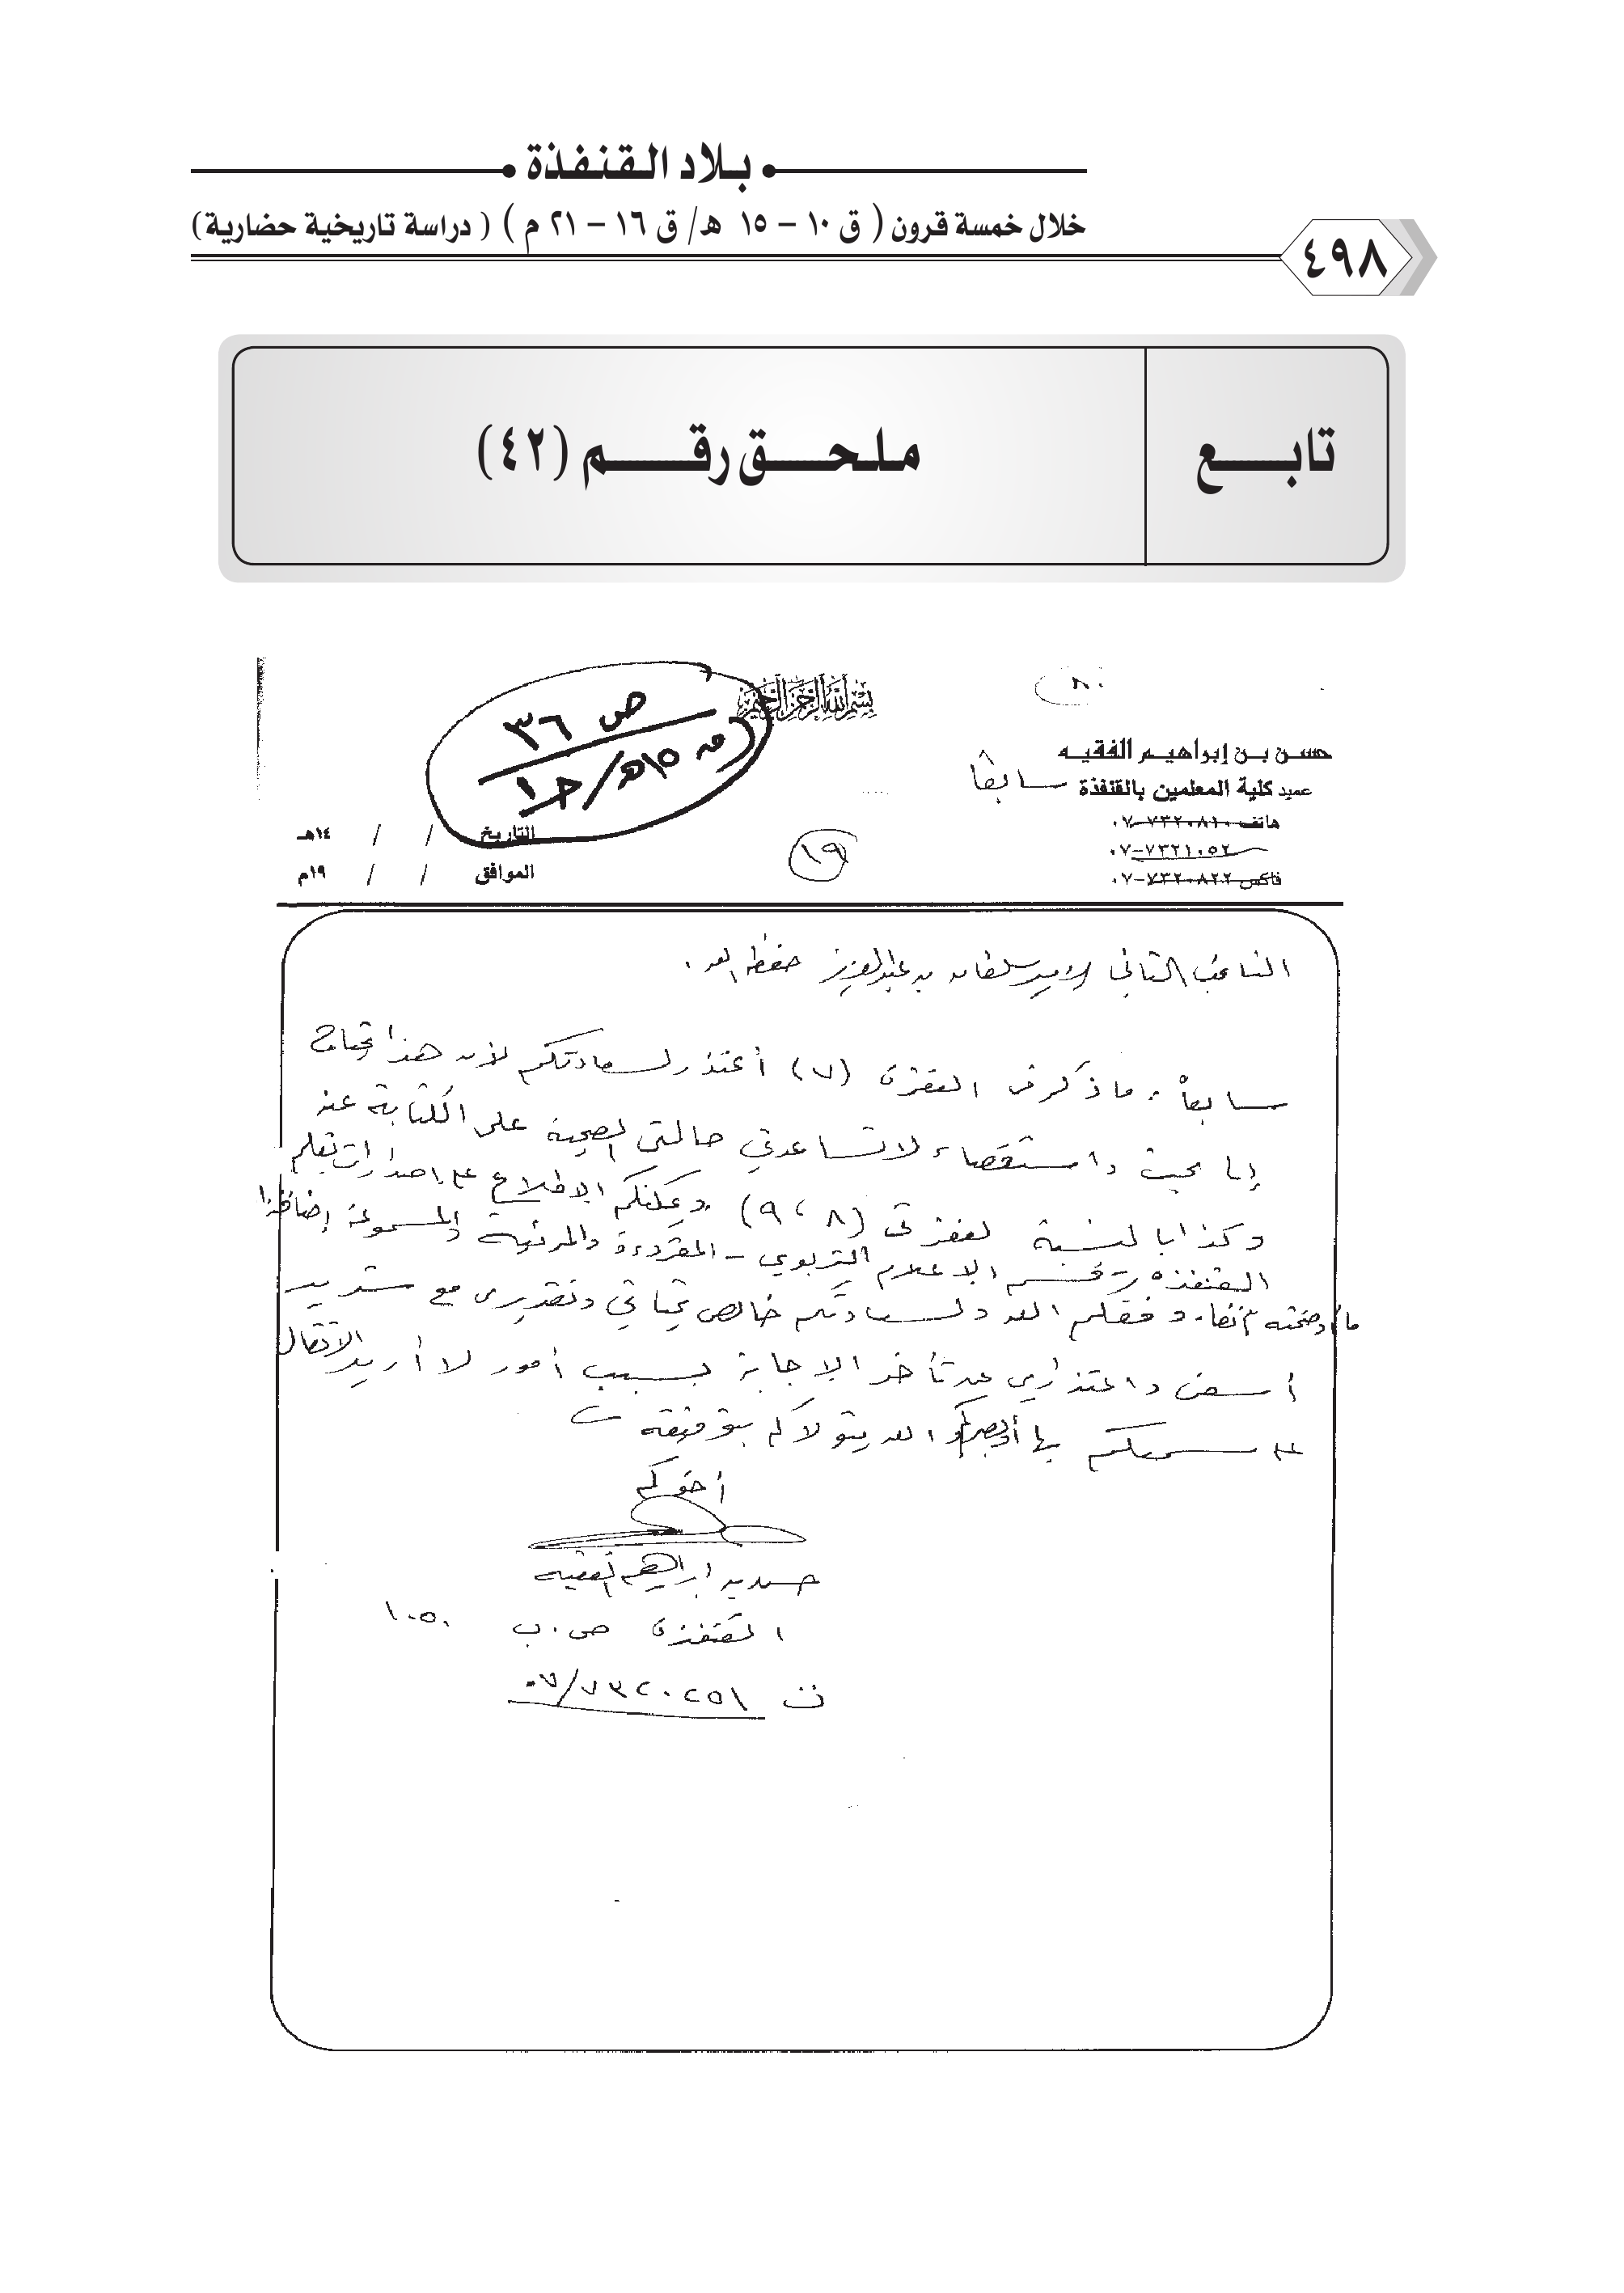 بلاد القنفذة
خلال خمسة قرون ( ق ١٠ – ١٥ هـ/ ق ١٦ – ٢١ م ) ( دراسة تاريخية حضارية)
٤٩٨
تابع
ملحق رقم (٤٢)
بسم الله الرحمن الرحيم
٨٠
ص ٣٦
ق ١٥هـ/ حـ١
حسن بن إبراهيم الفقيه
عميد كلية المعلمين بالقنفذة سابقاً
هاتف ٧٣٢٠٨١٠-٠٧
٧٣٢١٠٥٢-٠٧
فاكس ٧٣٢٠٨٢٢-٠٧
١٩
التاريخ / / ١٤هـ
الموافق / / ١٩م
النائب الثاني الأمير سلطان بن عبدالعزيز حفظه الله .
سابعاً : ما ذكر في الفقرة (٧) أعتذر لسعادتكم لأن هذا يحتاج
إلى بحث واستقصاء لا تساعدني حالتي الصحية على الكتابة عنه
وكذا بالنسبة لفقرتي (٨ ، ٩) ويمكنكم الاطلاع على اصدارات تعليم
القنفذة – قسم الإعلام التربوي – المقروءة والمرئية والمسموعة إضافة إلى
ما أوضحته آنفا . وفقكم الله ولسعادتكم خالص تحياتي وتقديري مع شديد
أسفي واعتذاري عن تأخر الإجابة بسبب أمور لا أريد الاثقال
على سمعكم بها أو بصركم والله يتولاكم بتوفيقه
أخوكم
حسن بن ابراهيم الفقيه
القنفذة ص . ب ١٠٥٠
ت ٠٧/٧٣٢٠٢٥١